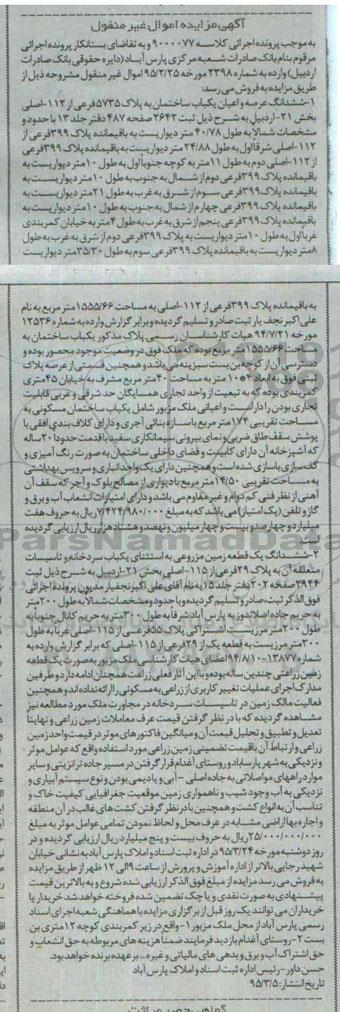 آگهی مزایده اموال غیر منقول
به موجب پرونده اجرائی کلاسه ۹۰۰۰۰۷۷ و به تقاضای بستانکار پرونده اجرائی
مرقوم بنام بانک صادرات شعبه مرکزی پارس آباد (دایره حقوقی بانک صادرات
اردبیل) وارده به شماره ۲۳۹۸ مورخه ۹۵/۲/۲۵ اموال غیر منقول مشروحه ذیل از
طریق مزایده به فروش می رسد:
۱-ششدانگ عرصه و اعیان یکباب ساختمان به پلاک ۵۷۳۵ فرعی از ۱۱۲-اصلی
بخش ۲۱-اردبیل به شرح ذیل ثبت ۲۶۴۲ صفحه ۴۸۷ دفتر جلد ۱۳ با حدود و
مشخصات شمالا به طول ۴۰/۷۸ متر دیواریست به باقیمانده پلاک ۳۹۹ فرعی از
۱۱۲-اصلی شرقا اول به طول ۲۴/۸۸ متر دیواریست به باقیمانده پلاک ۳۹۹ فرعی
از ۱۱۲-اصلی دوم به طول ۱۱ متر به کوچه جنوبا اول به طول ۱۰ متر دیواریست به
باقیمانده پلاک ۳۹۹ فرعی دوم از شمال به جنوب به طول ۱۰ متر دیواریست به
باقیمانده پلاک ۳۹۹ فرعی سوم از شرق به غرب به طول ۲۱ متر دیواریست به
باقیمانده پلاک ۳۹۹ فرعی چهارم از شمال به جنوب به طول ۱۰ متر دیواریست به
باقیمانده پلاک ۳۹۹ فرعی پنجم از شرق به غرب به طول ۴ متر به خیابان کمربندی
غربا اول به طول ۱۰ متر دیواریست به پلاک ۳۹۹ فرعی دوم از شرق به غرب به طول
۸ متر دیواریست به باقیمانده پلاک ۳۹۹ فرعی سوم به طول ۳۵/۳۰ متر دیواریست
به باقیمانده پلاک ۳۹۹ فرعی از ۱۱۲-اصلی به مساحت ۱۵۵۵/۶۶ متر مربع به نام
علی اکبر نجف یار ثبت صادر و تسلیم گردیده و برابر گزارش وارده به شماره ۱۲۵۳۶
مورخه ۹۴/۷/۲۱ هیات کارشناسان رسمی پلاک مذکور یکباب ساختمان به
مساحت ۱۵۵۵/۶۶ متر مربع بوده که ملک فوق در وضعیت موجود محصور بوده و
دسترسی آن از کوچه بن بست سبزینه می باشد و همچنین قسمتی از عرصه پلاک
ثبتی فوق به ابعاد ۴*۱۰ متر به مساحت ۴۰ متر مربع مشرف به خیابان ۴۵ متری
کمربندی بوده که به تبعیت از واحد تجاری همسایگان حد شرقی و غربی قابلیت
تجاری بودن را دارا است و اعیانی ملک مزبور شامل یکباب ساختمان مسکونی به
مساحت تقریبی ۱۷۴ متر مربع با سازه بنائی آجری و دارای کلاف بندی افقی با
پوشش سقف طاق ضربی و نمای بیرونی سیمانکاری سفید با قدمت حدودا ۲۰ ساله
که آشپزخانه آن دارای کابینت و فضای داخلی ساختمان به صورت رنگ آمیزی و
گف سازی بازسازی شده است و همچنین دارای یک واحد انباری و سرویس بهداشتی
به مساحت تقریبی ۱۴/۵۰ متر مربع با دیواری از مصالح بلوک و آجر که سقف آن
آهنی از نظر فنی کم دوام و غیر مقاوم می باشد و دارای امتیازات انشعاب آب و برق و
گاز و تلفن (یک امتیاز) می باشد که به مبلغ ۷/۴۲۴/۹۸۰/۰۰۰ ریال به حروف هفت
میلیارد و چهارصد و بیست و چهار میلیون و نهصد و هشتاد هزار ریال ارزیابی گردیده
است
۲-ششدانگ یک قطعه زمین مزروعی به استثنای یکباب سردخانه و تاسیسات
متعلقه آن به پلاک ۲۹ فرعی از ۱۱۵-اصلی بخش ۲۱-اردبیل به شرح ذیل ثبت
۲۹۴۴ صفحه ۲۰۲ دفتر جلد ۱۵ به نام آقای علی اکبر نجفیار مدیون پرونده اجرائی
فوق الذکر ثبت صادر و تسلیم گردیده و با حدود و مشخصات شمالا به طول ۲۰۰ متر
به حریم جاده اصلاندوز به پارس آباد شرقا به طول ۳۰۰ متر به حریم کانال جنوبا به
طول ۲۰۰ متر مرزیست اشتراکی پلاک ۵۵ فرعی از ۱۱۵-اصلی غربا به طول
۳۰۰ متر مرزیست به قطعه یک از ۳۹ فرعی از ۱۱۵-اصلی که برابر گزارش وارده به
شماره ۱۳۸۷۷-۹۴/۸/۱۰ اعضای هیات کارشناسی ملک مزبور به صورت یک قطعه
زمین زراعتی چندین ساله بوده و با این آثار فعلی زراعت همچنان ادامه دارد و طرفین
مدارک اجرای عملیات تغییر کاربری از زراعی به مسکونی را ارائه نداده اند و همچنین
فعالیت مالک زمین در تاسیسات سردخانه در مجاورت ملک مورد مطالعه نیز
مشاهده گردیده که با در نظر گرفتن قیمت عرف معاملات زمین زراعی و نهایتا
تعدیل و تطبیق و تحلیل قیمت آن و میانگین فاکتورهای موثر در قیمت واحد زمین
زراعی و ارتباط آن با قیمت تضمینی زمین زراعی مورد استفاده واقع که عوامل موثر
و نزدیکی به شهر پارساباد و روستای آغدام قرار گرفتن در مسیر جاده ترانزیتی و سایر
موارد راههای مواصلاتی به جاده اصلی - آبی و یا دیمی بودن و نوع سیستم آبیاری و
نزدیکی به آب وجود شیب و ناهمواری زمین موقعیت جغرافیایی کیفیت خاک و
تناسب آن به انواع کشت و همچنین با در نظر گرفتن کشت های غالب در آن منطقه
و اجاره بها اراضی مشابه در عرف محل و لحاظ نمودن تمامی عوامل موثر به مبلغ
۲۵/۰۰۰/۰۰۰/۰۰۰ ریال به حروف بیست و پنج میلیارد ریال ارزیابی گردیده و در
روز دوشنبه مورخه ۹۵/۳/۲۴ در اداره ثبت اسناد و املاک پارس آباد به نشانی خیابان
شهید رجایی بالاتر از اداره آموزش و پرورش از ساعت ۹ الی ۱۲ ظهر از طریق مزایده
به فروش می رسد مزایده از مبلغ فوق الذکر ارزیابی شده شروع و به بالاترین قیمت
پیشنهادی به صورت نقدی و یا چک تضمین شده فروخته خواهد شد خریدار یا
خریداران می توانند یک روز قبل از برگزاری مزایده با هماهنگی شعبه اجرای اسناد
رسمی پارس آباد از محل ملک مزبور ۱-واقع در زیر کمربندی کوچه ۱۲ متری بن
بست ۲-روستای آغدام بازدید فرمایند ضمنا هزینه های مربوطه به حق انشعاب و
حق اشتراک آب و برق و بدهی های مالیاتی و غیره... بر عهده برنده خواهد بود.
حسن داور-رئیس اداره ثبت اسناد و املاک پارس آباد
تاریخ انتشار: ۹۵/۳/۵
ParsNamadData